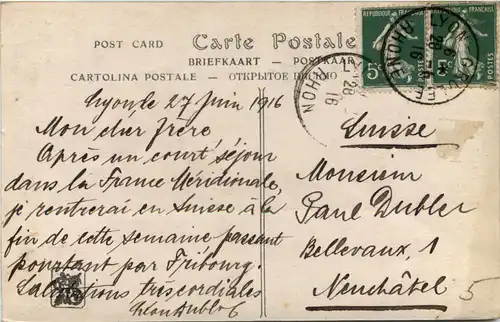 POST CARD Carte Postale
BRIEFKAART — POSTKAART
CARTOLINA POSTALE — ОТКРЫТОЕ ПИСЬМО
REPUBLIQUE FRANÇAISE
5c
REPUBLIQUE FRANÇAISE
5c
LYON
RHONE
28
16
Lyon le 27 Juin 1916
Mon cher frère
Après un court séjour
dans la France Méridionale,
je rentrerai en Suisse à la
fin de cette semaine passant
pourtant par Fribourg.
Salutations très cordiales
Suisse
Monsieur
Paul Dubler
Bellevaux, 1
Neuchâtel
5